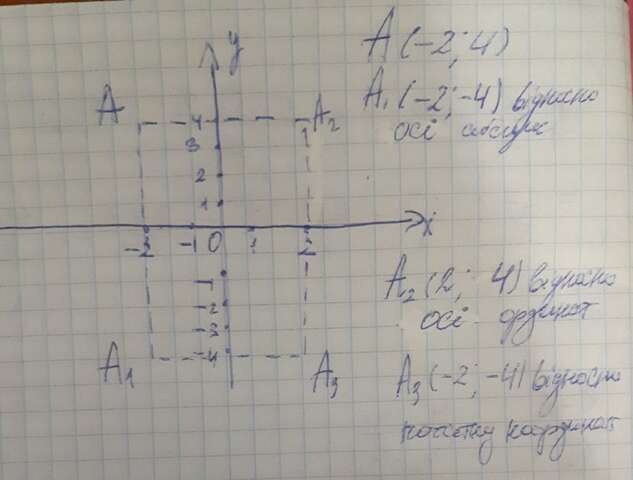 y
A(-2; 4)
A₁(-2; -4) відносно
осі абсцис
A 4 A₂
3
2
1
x
-2 -1 0 1 2
A₂(2; 4) відносно
осі ординат
-1
-2
-3
A₁ -4 A₃
A₃(-2; -4) відносно
початку координат